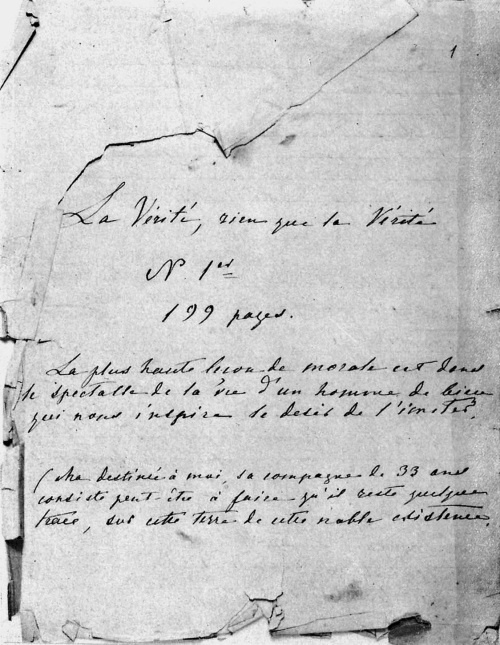 1
La Vérité, rien que la Vérité
N. 1er
199 pages.
La plus haute leçon de morale est dans
le spectacle de la vie d'un homme de bien
qui nous inspire le desir de l'imiter.
(Ma destinée à moi, sa compagne de 33 ans
consiste peut être à faire qu'il reste quelque
trace, sur cette terre de cette noble existence.